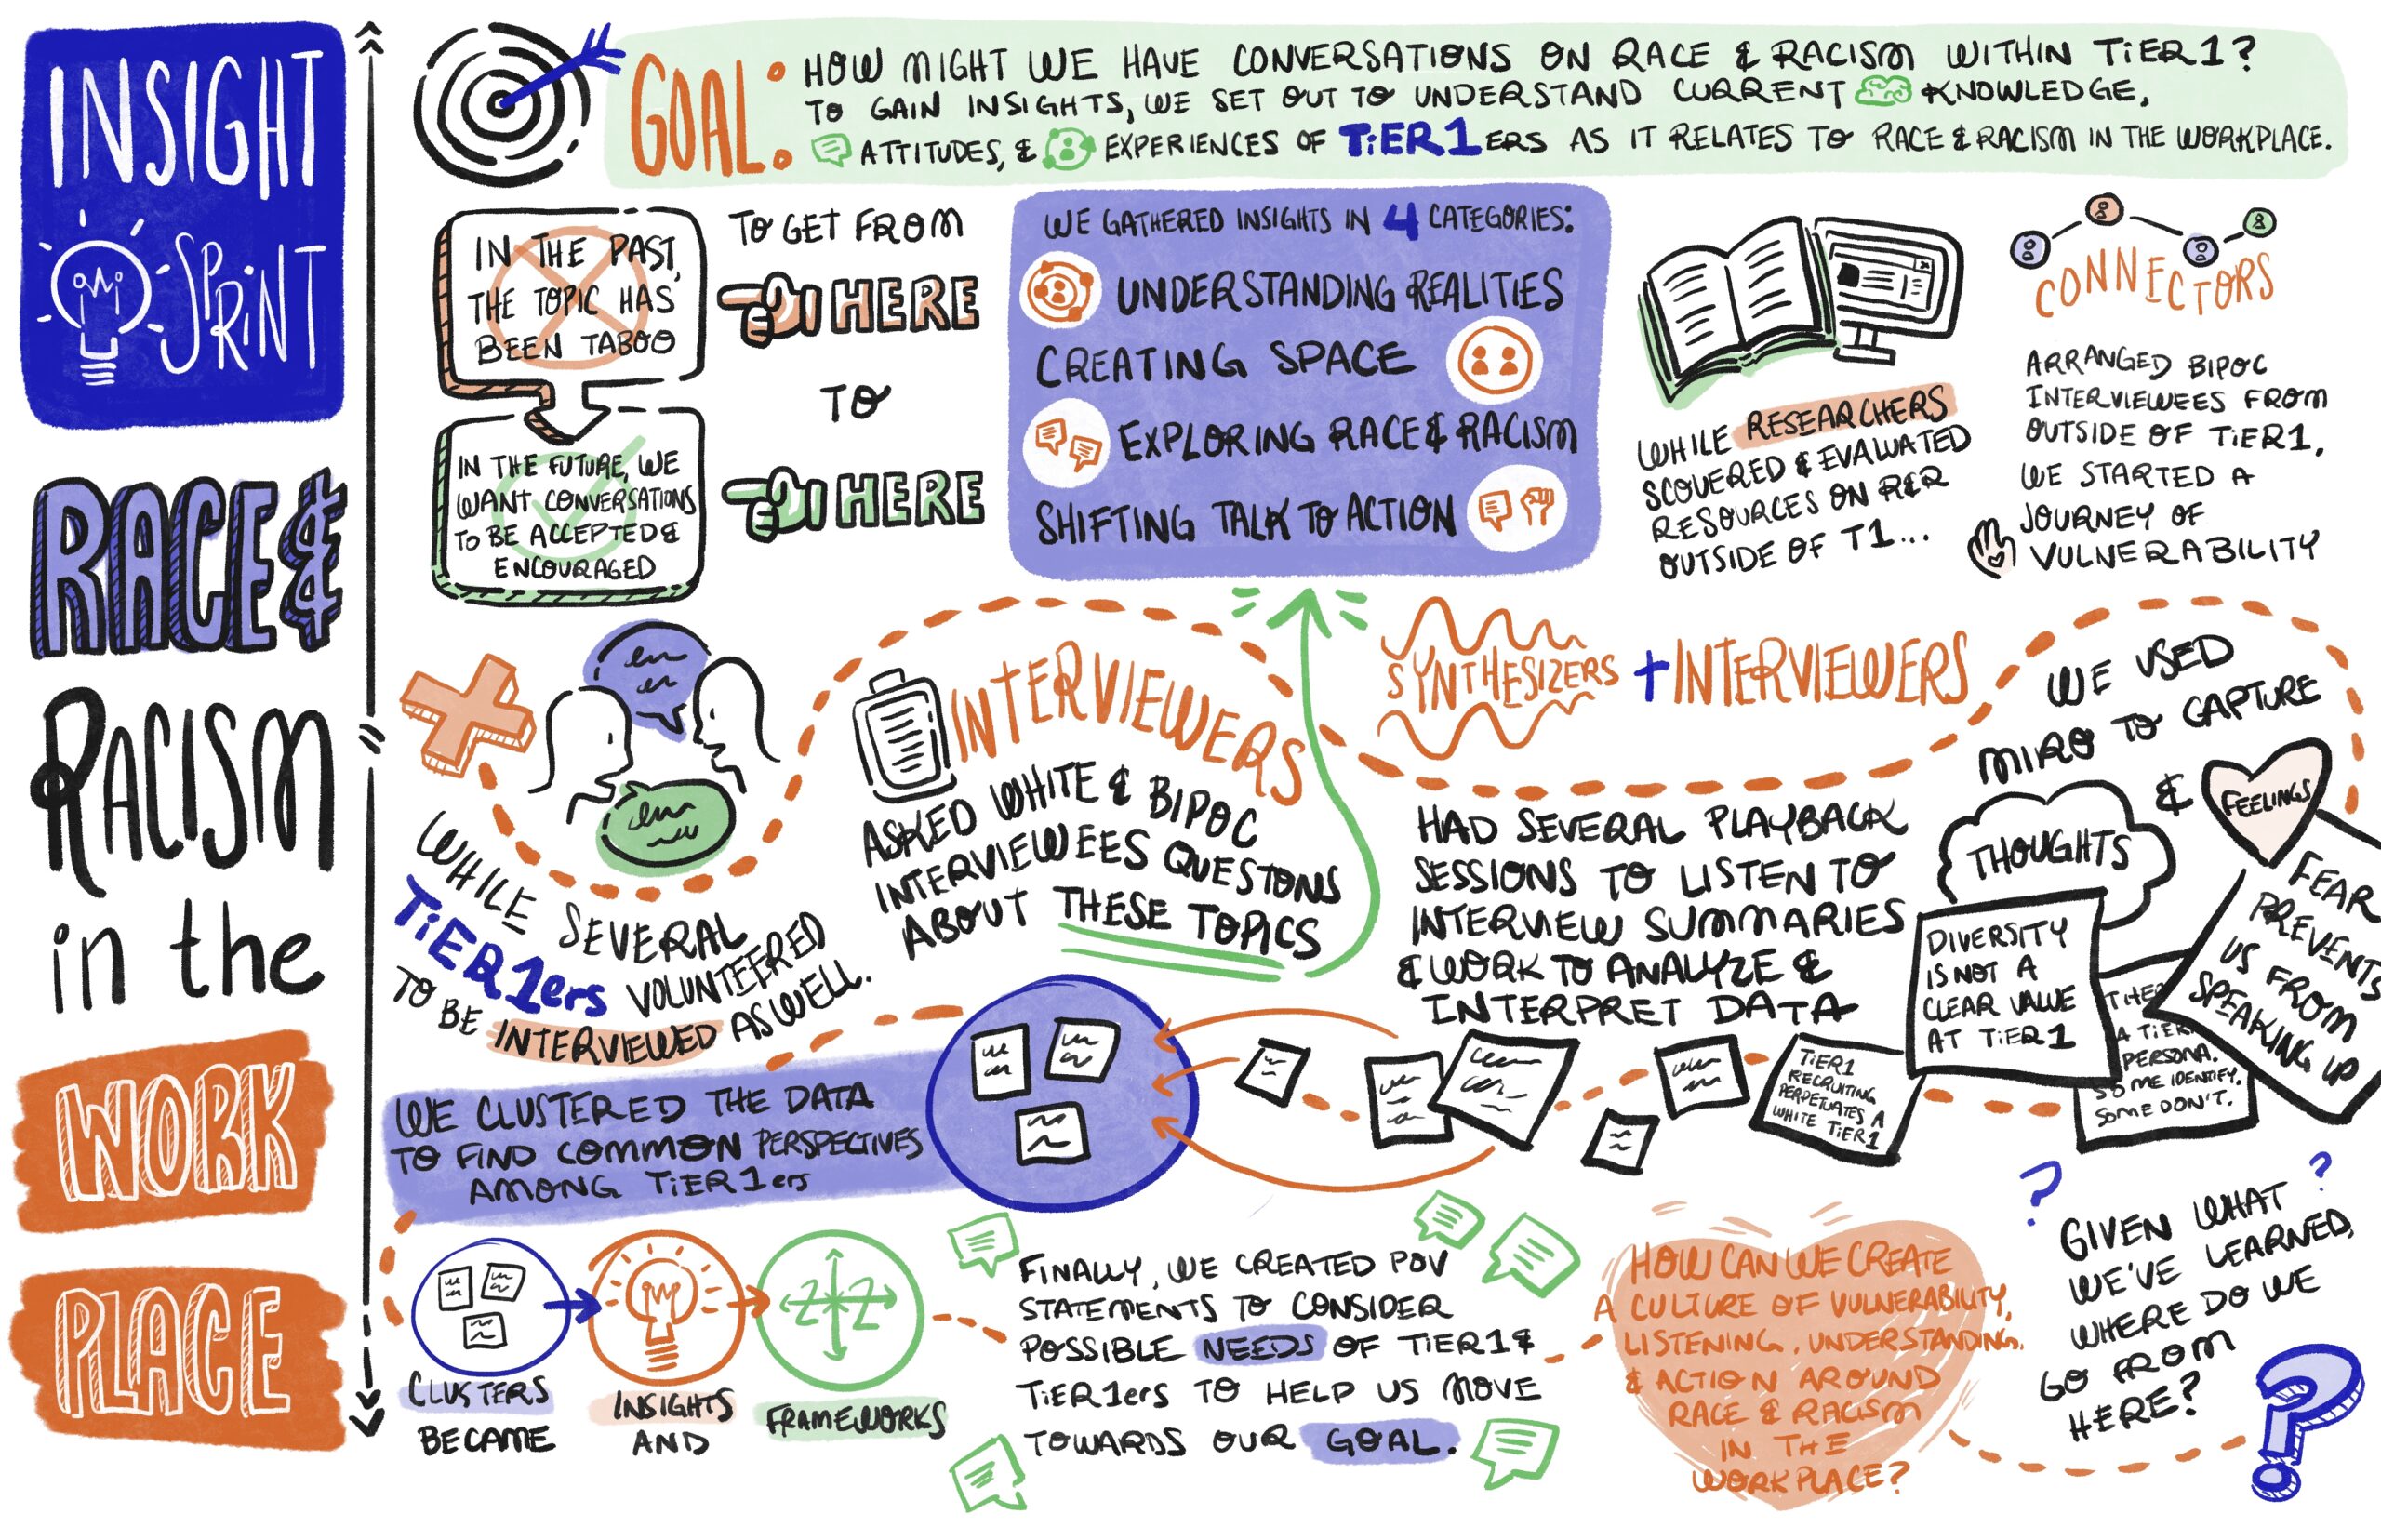 INSIGHT
SPRINT
RACE &
RACISM
in the
WORK
PLACE
GOAL:
HOW MIGHT WE HAVE CONVERSATIONS ON RACE & RACISM WITHIN TiER1?
TO GAIN INSIGHTS, WE SET OUT TO UNDERSTAND CURRENT KNOWLEDGE,
ATTITUDES, & EXPERIENCES OF TiER1ERS AS IT RELATES TO RACE & RACISM IN THE WORKPLACE.
IN THE PAST,
THE TOPIC HAS
BEEN TABOO
IN THE FUTURE, WE
WANT CONVERSATIONS
TO BE ACCEPTED &
ENCOURAGED
TO GET FROM
HERE
TO
HERE
WE GATHERED INSIGHTS IN 4 CATEGORIES:
UNDERSTANDING REALITIES
CREATING SPACE
EXPLORING RACE & RACISM
SHIFTING TALK TO ACTION
WHILE RESEARCHERS
SCOVERED & EVALUATED
RESOURCES ON R&R
OUTSIDE OF T1...
CONNECTORS
ARRANGED BIPOC
INTERVIEWEES FROM
OUTSIDE OF TiER1.
WE STARTED A
JOURNEY OF
VULNERABILITY
WHILE SEVERAL
TiER1ers VOLUNTEERED
TO BE INTERVIEWED AS WELL.
INTERVIEWERS
ASKED WHITE & BIPOC
INTERVIEWEES QUESTONS
ABOUT THESE TOPICS
SYNTHESIZERS + INTERVIEWERS
HAD SEVERAL PLAYBACK
SESSIONS TO LISTEN TO
INTERVIEW SUMMARIES
& WORK TO ANALYZE &
INTERPRET DATA
WE USED
MIRO TO CAPTURE
THOUGHTS
&
FEELINGS
DIVERSITY
IS NOT A
CLEAR VALUE
AT TiER1
FEAR
PREVENTS
US FROM
SPEAKING UP
A TiER
PERSONA.
SOME IDENTIFY.
SOME DON'T.
TiER1
RECRUITING
PERPETUATES A
WHITE TiER1
WE CLUSTERED THE DATA
TO FIND COMMON PERSPECTIVES
AMONG TiER1ers
CLUSTERS
BECAME
INSIGHTS
AND
FRAMEWORKS
FINALLY, WE CREATED POV
STATEMENTS TO CONSIDER
POSSIBLE NEEDS OF TiER1 &
TiER1ers TO HELP US MOVE
TOWARDS OUR GOAL.
HOW CAN WE CREATE
A CULTURE OF VULNERABILITY,
LISTENING, UNDERSTANDING,
& ACTION AROUND
RACE & RACISM
IN THE
WORKPLACE?
GIVEN WHAT
WE'VE LEARNED,
WHERE DO WE
GO FROM
HERE?